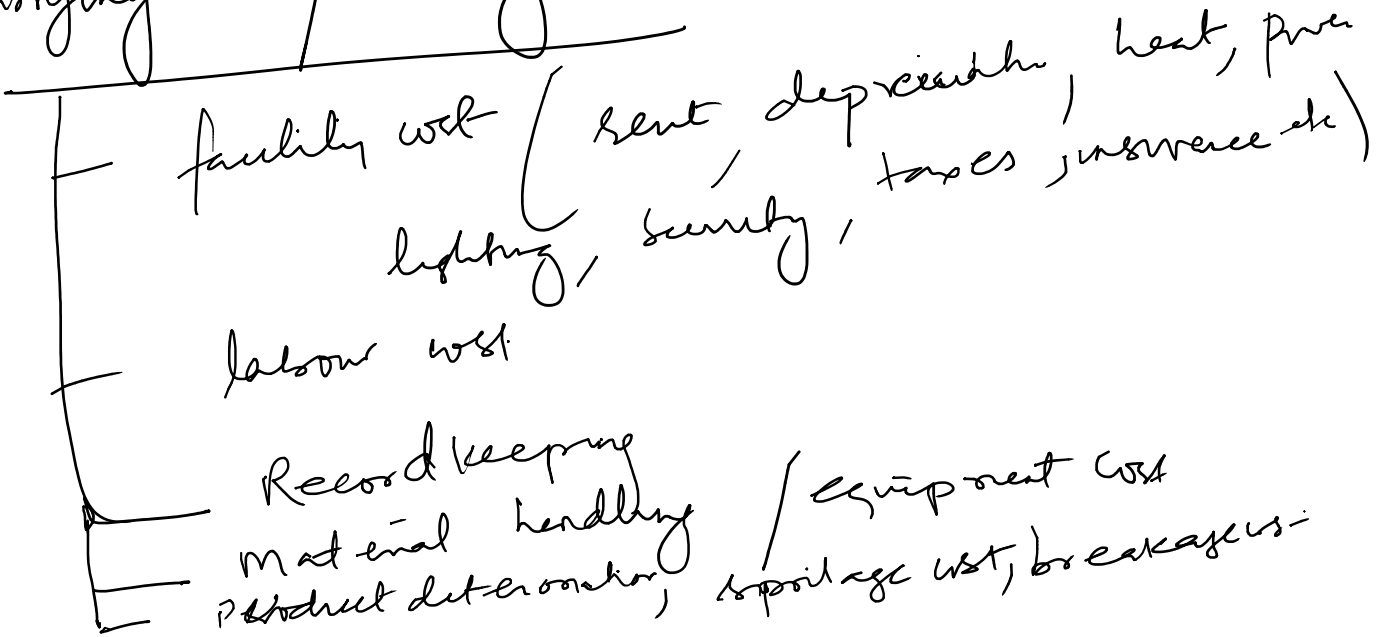 facility cost (rent, depreciation, heat, power
lighting, security, taxes, insurance etc)
labour cost
Record keeping
material handling / equipment cost
product deterioration, spoilage cost, breakage